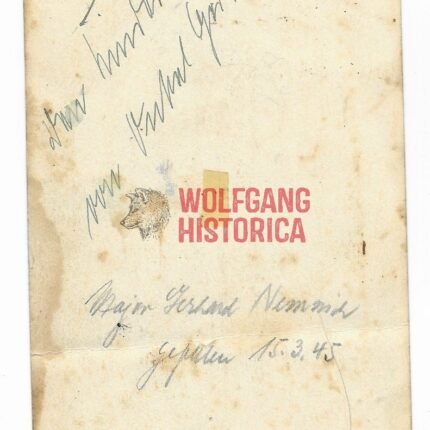 von Onkel
WOLFGANG
HISTORICA
Major Gerhard Nemnich
gefallen 15.3.45